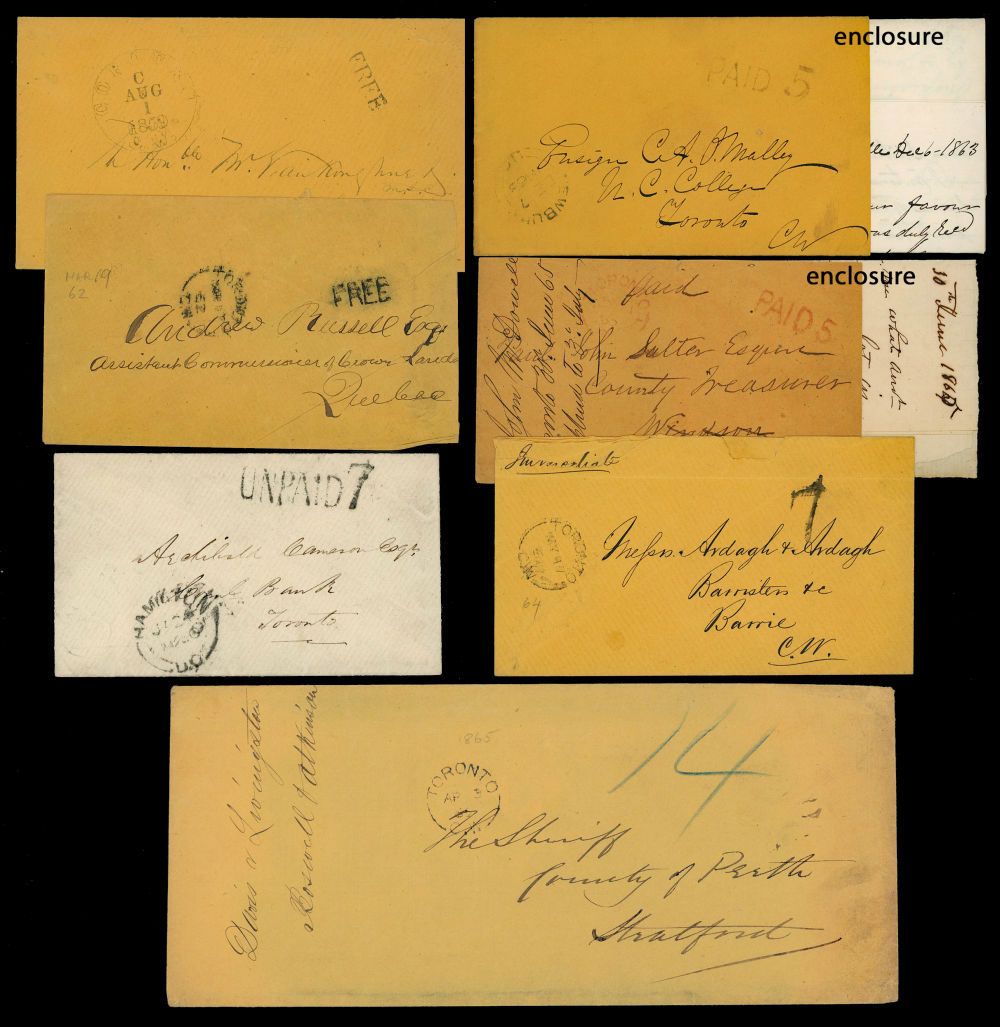 C
AUG
1
FREE
Hon'ble Mr.
enclosure
PAID 5
Ensign C. A. O.Malley
U. C. College
Toronto
CW
Dec 6-1863
favour
was duly Recd
MAR 19
62
FREE
Andrew Russell Esqr
Assistent Commissioier of Crown Lands
Quebec
enclosure
Paid
PAID 5
John Salter Esquire
County Treasurer
Windsor
John McDowell
30th June 1865
what
UNPAID 7
Archibald Cameron Esqr
Bank
Toronto
HAMILTON
U.C.
Immediate
7
TORONTO
64
Messrs. Ardagh & Ardagh
Barristers &c
Barrie
C.W.
Davis v Livingston
Roswell & Atkinson
1865
14
TORONTO
AP
The Sheriff
County of Perth
Stratford